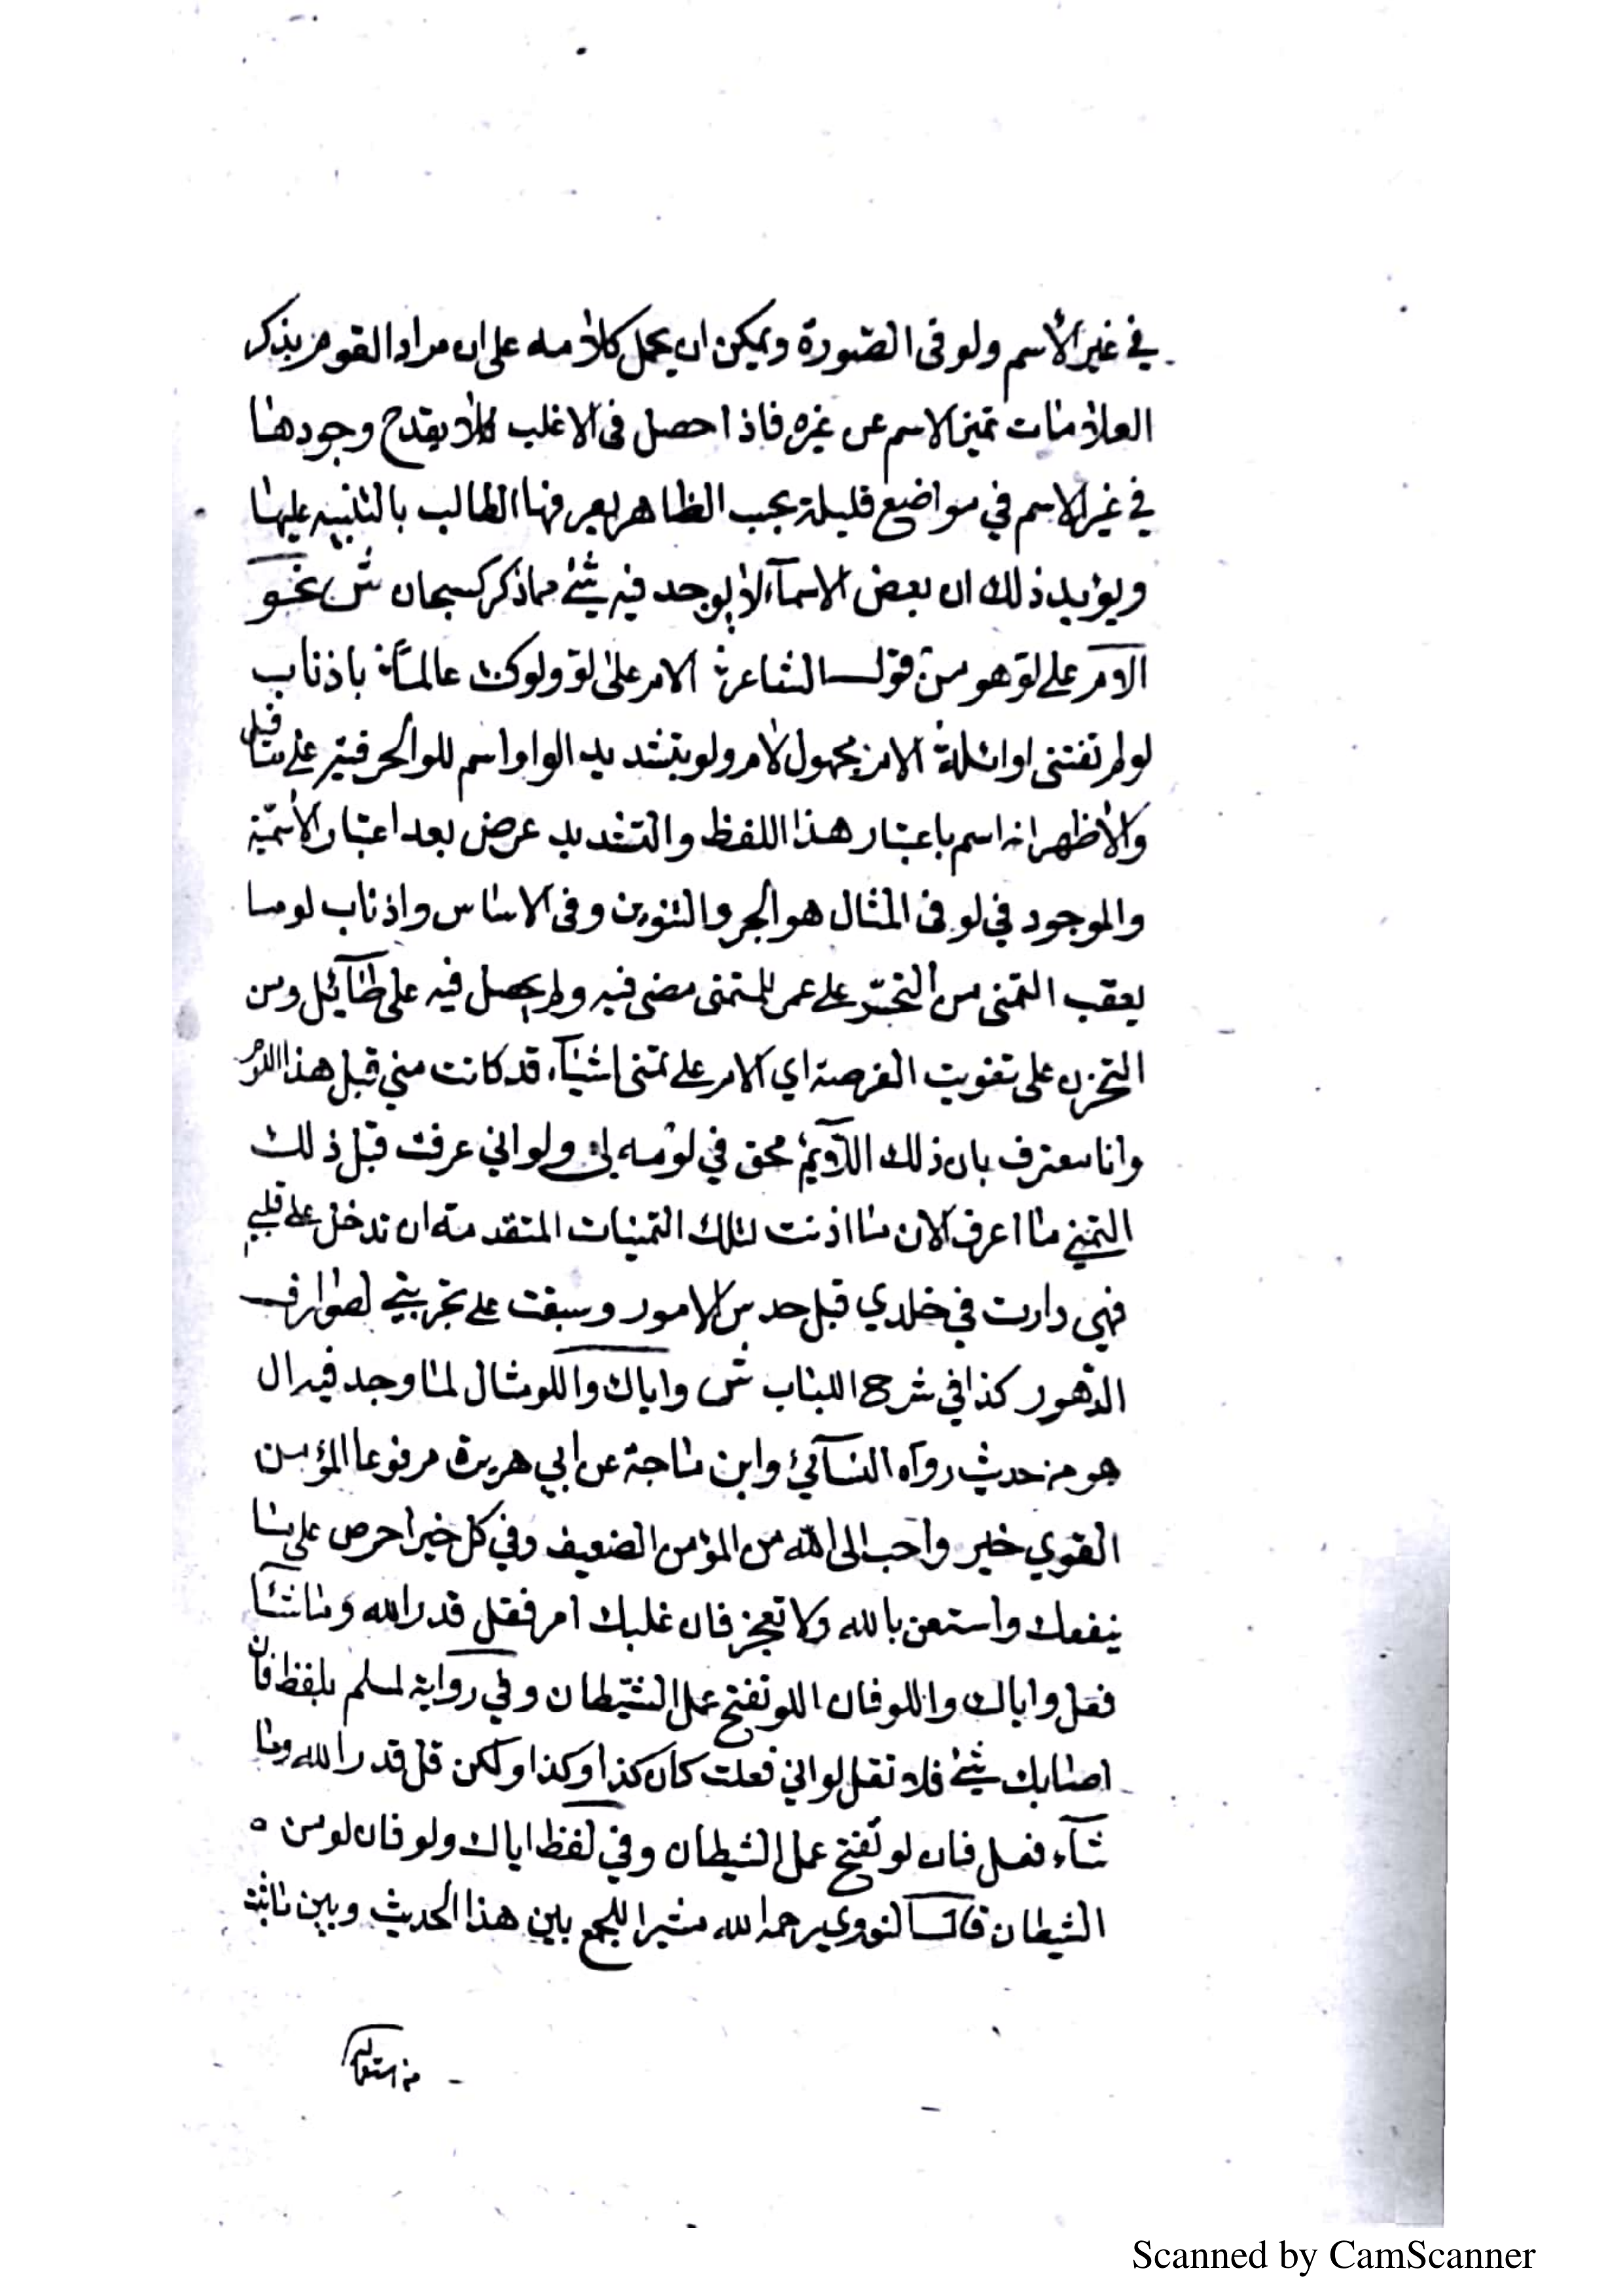 في غير الاسم ولو في الصورة ويمكن ان يحمل كلامه على ان مراد القوم بذكر
العلامات تميز الاسم عن غيره فاذا حصل في الاغلب فلا يقدح وجودها
في غير الاسم في مواضع قليلة بحسب الظاهر يعرفها الطالب بالتنبيه عليها
ويؤيد ذلك ان بعض الاسماء لا يوجد فيه شئ مما ذكر كسبحان ش نحو
الام على لو هو من قول الشاعر الام على لو ولو كنت عالما باذناب
لو لم تفتني اوائله الام مجهول لام ولو بتشديد الواو اسم للو الحرفية على ما قيل
والاظهر انه اسم باعتبار هذا اللفظ والتشديد عرض بعد اعتبار الاسمية
والموجود في لو في المثال هو الجر والتنوين وفي الاساس واذناب لو ما
يعقب التمني من التحسر على عمر للمتمني مضى فيه ولم يحصل فيه على طائل ومن
التحزن على تفويت الفرصة اي الام على تمني اشياء قد كانت مني قبل هذا اللوم
وانا معترف بان ذلك اللائم محق في لومه لي ولو اني عرفت قبل ذلك
التمني ما اعرف الان ما اذنت لتلك التمنيات المتقدمة ان تدخل على قلبي
فهي دارت في خلدي قبل حدس الامور وسبقت على تجربتي لصوارف
الدهور كذا في شرح اللباب ش واياك واللو مثال لما وجد فيه ال
هو من حديث رواه النسائي وابن ماجة عن ابي هريرة مرفوعا المؤمن
القوي خير واحب الى الله من المؤمن الضعيف وفي كل خير احرص على ما
ينفعك واستعن بالله ولا تعجز فان غلبك امر فقل قدر الله وما شاء
فعل واياك واللو فان اللو تفتح عمل الشيطان وفي رواية لمسلم بلفظ فان
اصابك شئ فلا تقل لو اني فعلت كان كذا وكذا ولكن قل قدر الله وما
شاء فعل فان لو تفتح عمل الشيطان وفي لفظ اياك ولو فان لو من ه
الشيطان قال النووي رحمه الله مشيرا للجمع بين هذا الحديث وبين ما ثبت
Scanned by CamScanner